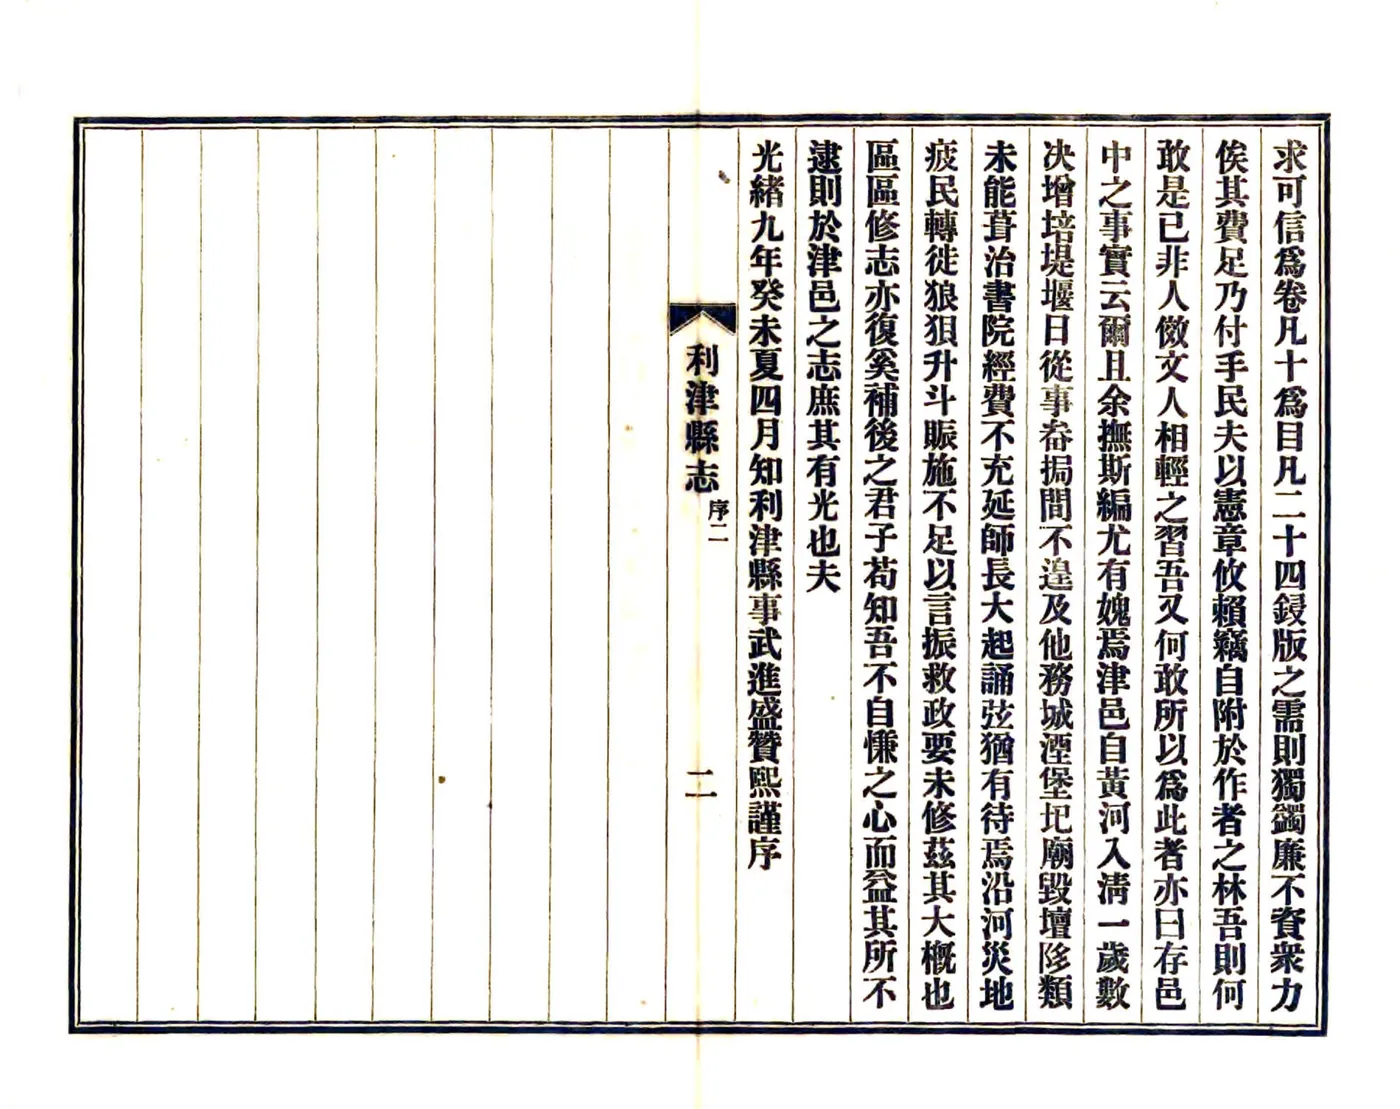 求可信爲卷凡十爲目凡二十四鋟版之需則獨蠲廉不資衆力
俟其費足乃付手民夫以憲章攸賴竊自附於作者之林吾則何
敢是已非人倣文人相輕之習吾又何敢所以爲此者亦曰存邑
中之事實云爾且余撫斯編尤有媿焉津邑自黃河入淸一歲數
决增培堤堰日從事畚挶間不遑及他務城湮堡圯廟毀壇陊類
未能葺治書院經費不充延師長大起誦弦猶有待焉沿河災地
疲民轉徙狼狽升斗賑施不足以言振救政要未修茲其大槪也
區區修志亦復奚補後之君子苟知吾不自慊之心而益其所不
逮則於津邑之志庶其有光也夫
光緒九年癸未夏四月知利津縣事武進盛贊熙謹序
利津縣志
序二
二